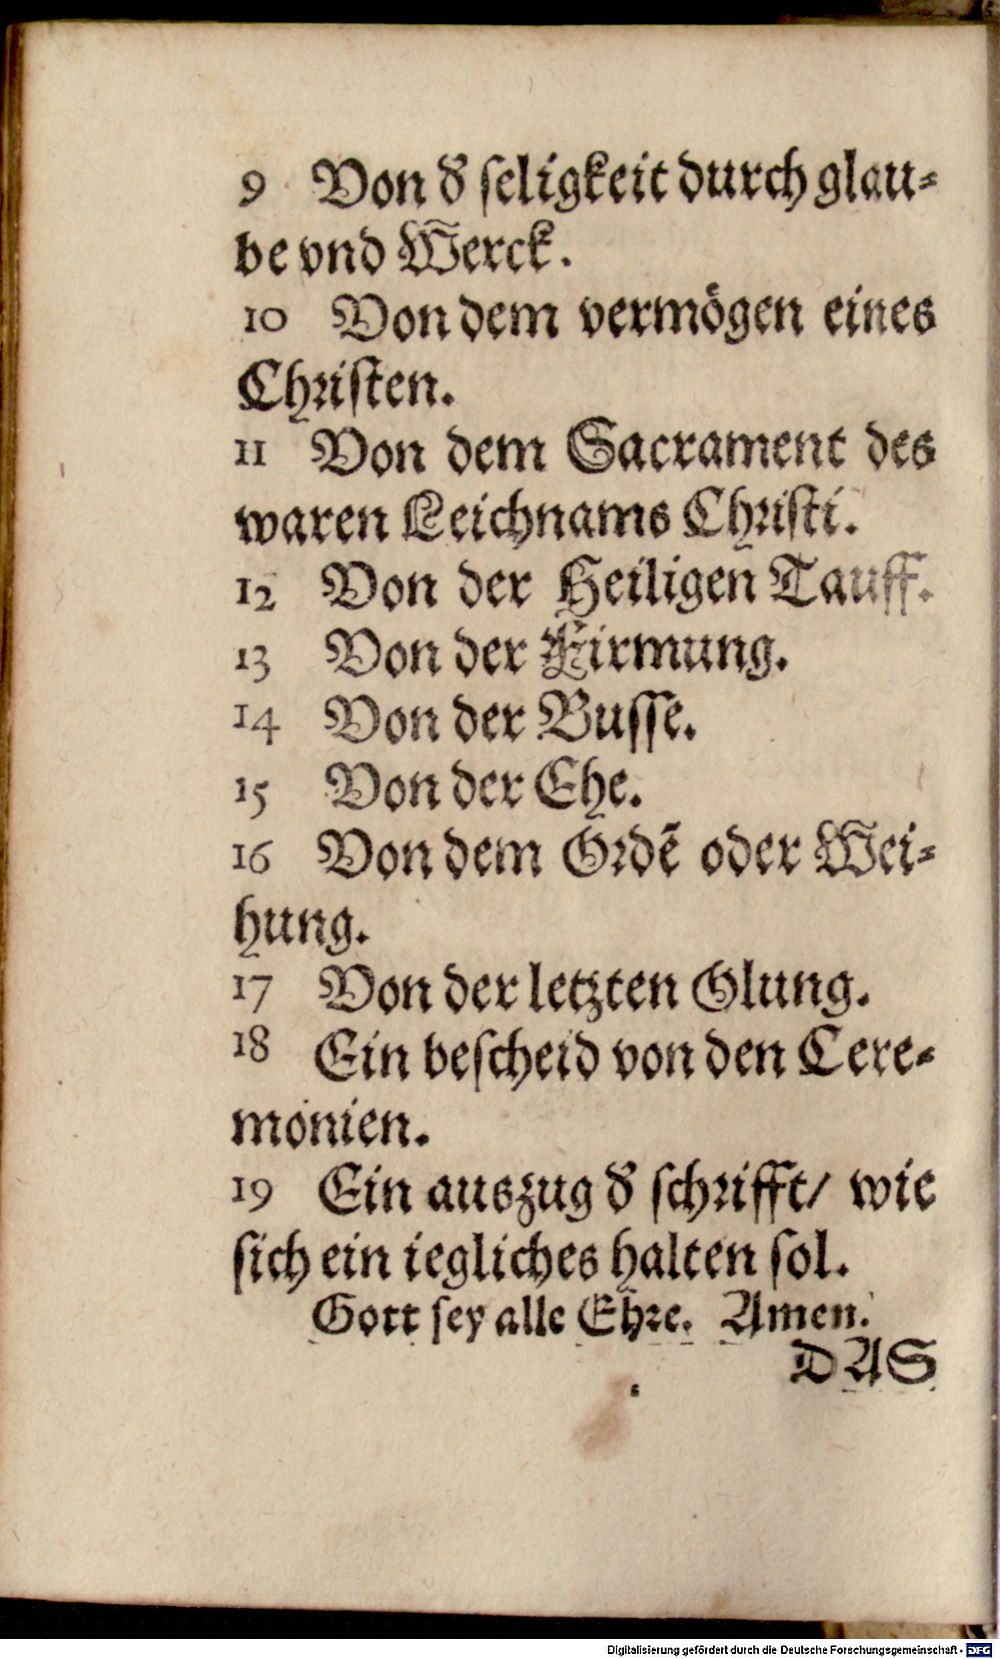 9 Von d̕ ſeligkeit durch glau⸗
be vnd Werck.
10 Von dem vermögen eines
Chriſten.
11 Von dem Sacrament des
waren Leichnams Chriſti.
12 Von der Heiligen Tauff.
13 Von der Firmung.
14 Von der Buſſe.
15 Von der Ehe.
16 Von dem Ordē oder Wei⸗
hung.
17 Von der letzten Olung.
18 Ein beſcheid von den Cere⸗
monien.
19 Ein auszug d̕ ſchrifft/ wie
ſich ein iegliches halten ſol.
Gott ſey alle Ehre. Amen.
DAS
Digitalisierung gefördert durch die Deutsche Forschungsgemeinschaft - DFG